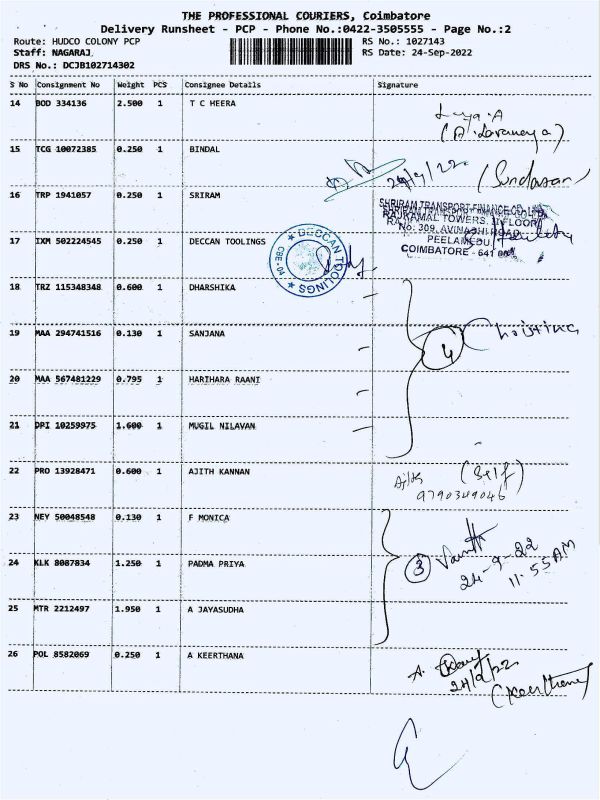 THE PROFESSIONAL COURIERS, Coimbatore
Delivery Runsheet - PCP - Phone No.:0422-3505555 - Page No.:2
Route: HUDCO COLONY PCP
RS No.: 1027143
Staff: NAGARAJ
RS Date: 24-Sep-2022
DRS No.: DCJB102714302
S No Consignment No Weight PCS Consignee Details Signature
14 BOD 334136 2.500 1 T C HEERA
15 TCG 10072385 0.250 1 BINDAL
24/9/22 (Sundaran)
16 TRP 1941057 0.250 1 SRIRAM
SHRIRAM TRANSPORT FINANCE CO. LTD.
RAJKAMAL TOWERS, II FLOOR
No: 309, AVINASHI ROAD
PEELAMEDU,
COIMBATORE - 641
17 IXM 502224545 0.250 1 DECCAN TOOLINGS
DECCAN TOOLINGS
CBE-04
18 TRZ 115348348 0.600 1 DHARSHIKA
19 MAA 294741516 0.130 1 SANJANA
4
20 MAA 567481229 0.795 1 HARIHARA RAANI
21 DPI 10259975 1.600 1 MUGIL NILAVAN
22 PRO 13928471 0.600 1 AJITH KANNAN
Ajith (Self)
9790349046
23 NEY 50048548 0.130 1 F MONICA
24 KLK 8087834 1.250 1 PADMA PRIYA
3
24-9-22
11.55AM
25 MTR 2212497 1.950 1 A JAYASUDHA
26 POL 8582069 0.250 1 A KEERTHANA
(Keerthana)